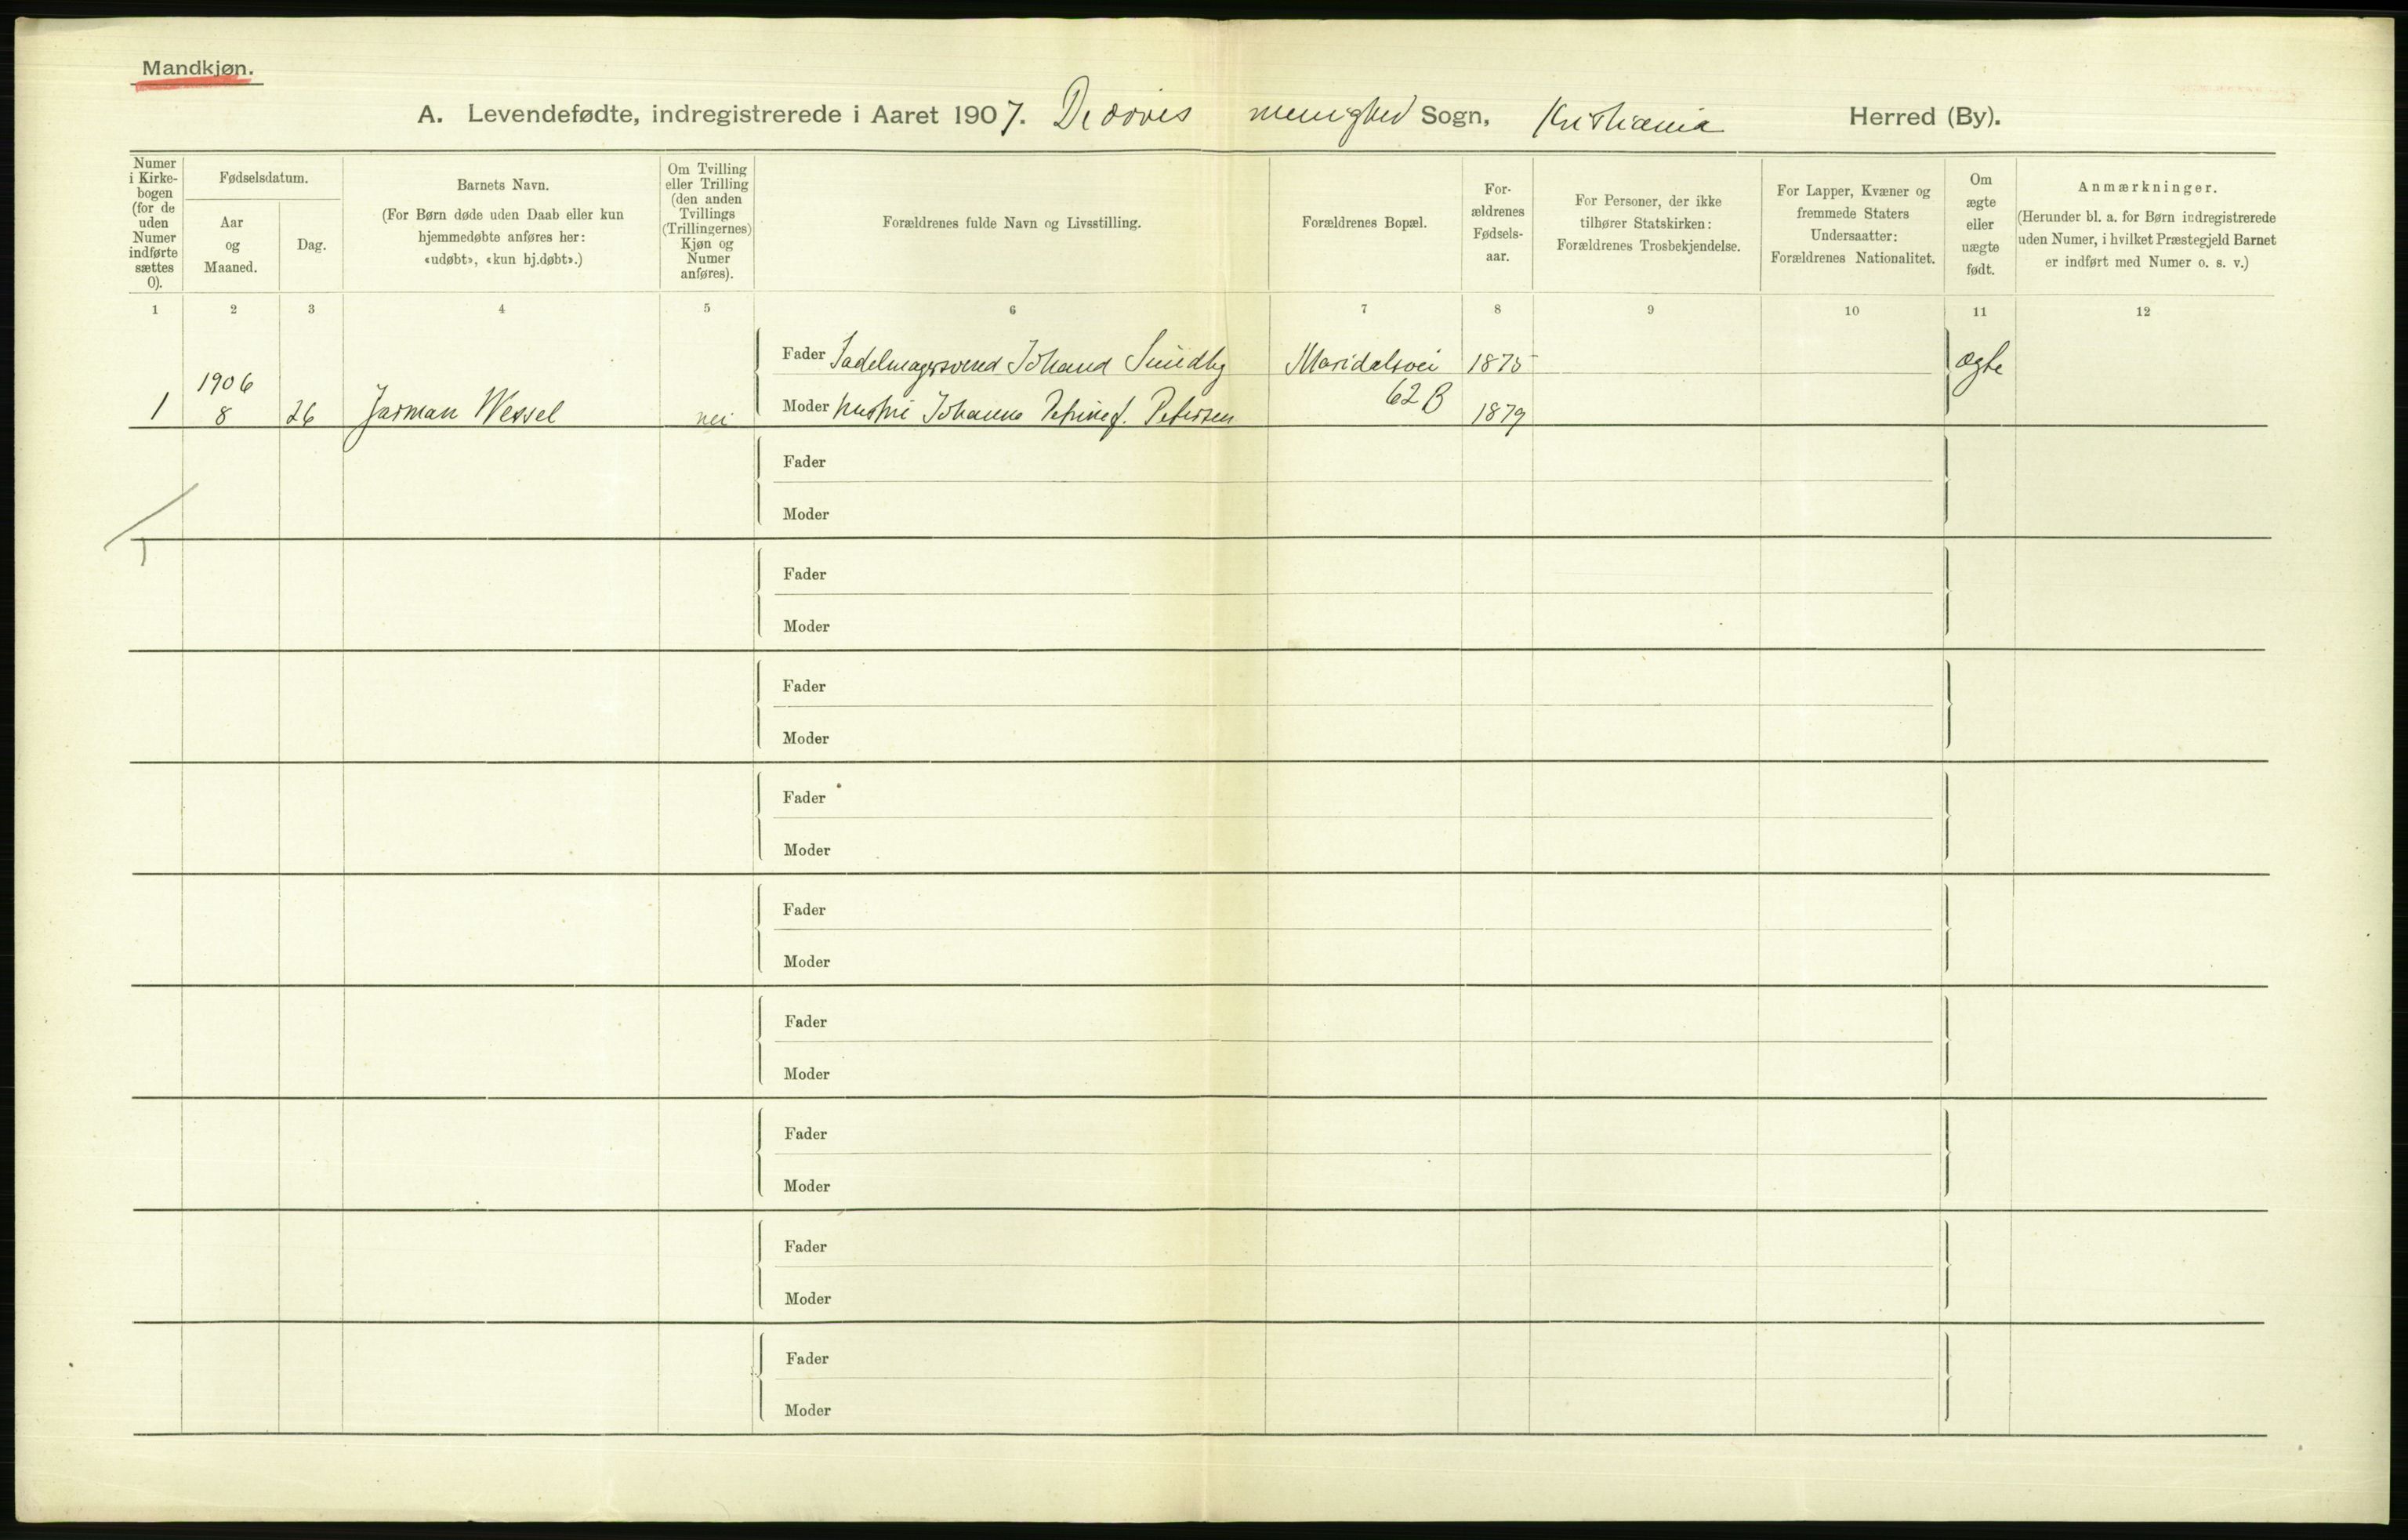 Mandkjøn.
A. Levendefødte, indregistrerede i Aaret 1907. De døves menighed Sogn, Kristiania Herred (By).
Numer i Kirkebogen (for de uden Numer indførte sættes 0).
Fødselsdatum.
Aar og Maaned.
Dag.
Barnets Navn.
(For Børn døde uden Daab eller kun hjemmedøbte anføres her: «udøbt», «kun hj.døbt».)
Om Tvilling eller Trilling (den anden Tvillings (Trillingernes) Kjøn og Numer anføres).
Forældrenes fulde Navn og Livsstilling.
Forældrenes Bopæl.
For-ældrenes Fødsels-aar.
For Personer, der ikke tilhører Statskirken: Forældrenes Trosbekjendelse.
For Lapper, Kvæner og fremmede Staters Undersaatter: Forældrenes Nationalitet.
Om ægte eller uægte født.
Anmærkninger.
(Herunder bl. a. for Børn indregistrerede uden Numer, i hvilket Præstegjeld Barnet er indført med Numer o. s. v.)
1 2 3 4 5 6 7 8 9 10 11 12
Fader Sadelmagersvend Johand Sundby Maridalsvei 1875 ægte
1906
1 8 26 Jarman Wessel nei Moder hustru Johanne Petrine f. Petersen 62 B 1879
Fader
Moder
Fader
Moder
Fader
Moder
Fader
Moder
Fader
Moder
Fader
Moder
Fader
Moder
Fader
Moder
Fader
Moder